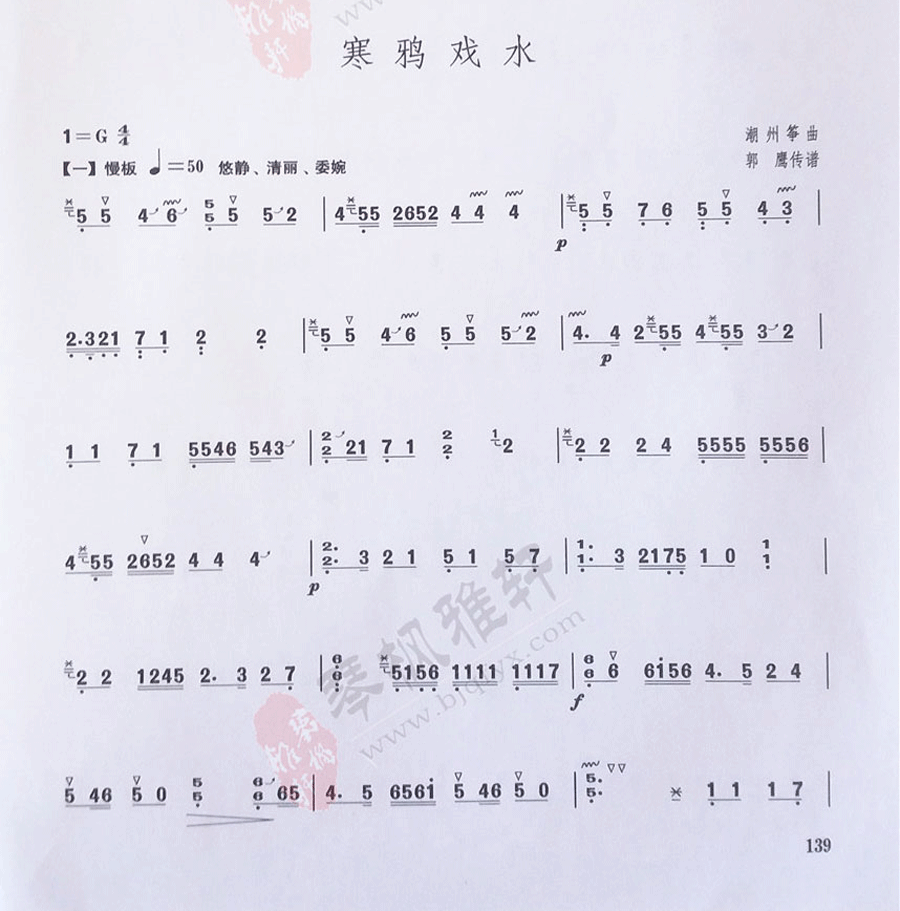 寒鸦戏水
1=G 4/4
潮州筝曲
【一】慢板 ♩=50 悠静、清丽、委婉
郭 鹰传谱
5 5 4 6 5/5 5 5 2 | 4 55 2652 4 4 4 | 5 5 7 6 5 5 4 3 |
p
2·321 7 1 2 2 | 5 5 4 6 5 5 5 2 | 4. 4 2 55 4 55 3 2 |
p
1 1 7 1 5546 543 | 2/2 21 7 1 2/2 1 2 | 2 2 2 4 5555 5556 |
4 55 2652 4 4 4 | 2/2. 3 2 1 5 1 5 7 | 1/1. 3 2175 1 0 1/1 |
p
2 2 1245 2. 3 2 7 | 6/6 5156 1111 1117 | 6/6 6 6156 4. 5 2 4 |
f
5 46 5 0 5/5 6/6 65 | 4. 5 6561 5 46 5 0 | 5/5. 1 1 1 7 |
琴帆雅轩
www.bjqfyx.com
139